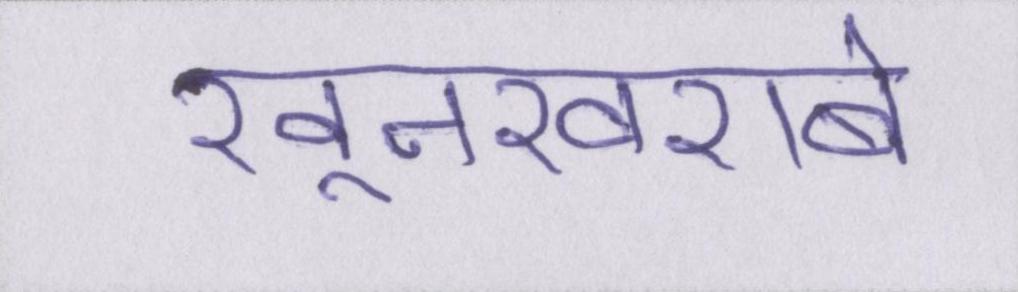 खूनखराबे